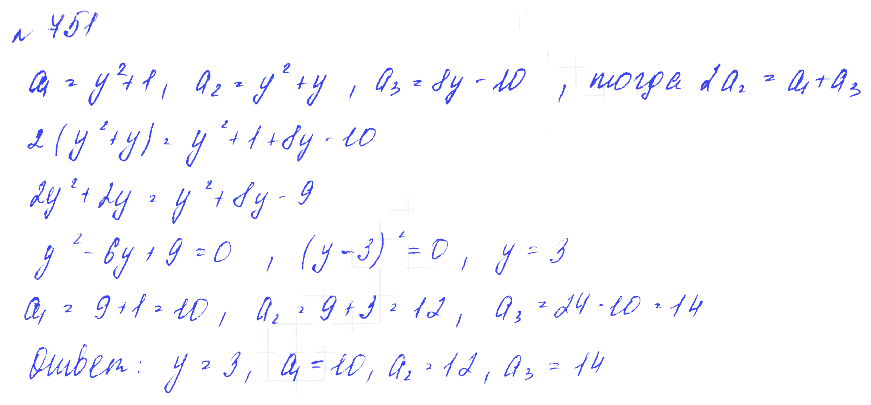 № 751
a₁ = y² + 1, a₂ = y² + y, a₃ = 8y - 10, тогда 2a₂ = a₁ + a₃
2(y² + y) = y² + 1 + 8y - 10
2y² + 2y = y² + 8y - 9
y² - 6y + 9 = 0, (y - 3)² = 0, y = 3
a₁ = 9 + 1 = 10, a₂ = 9 + 3 = 12, a₃ = 24 - 10 = 14
Ответ: y = 3, a₁ = 10, a₂ = 12, a₃ = 14